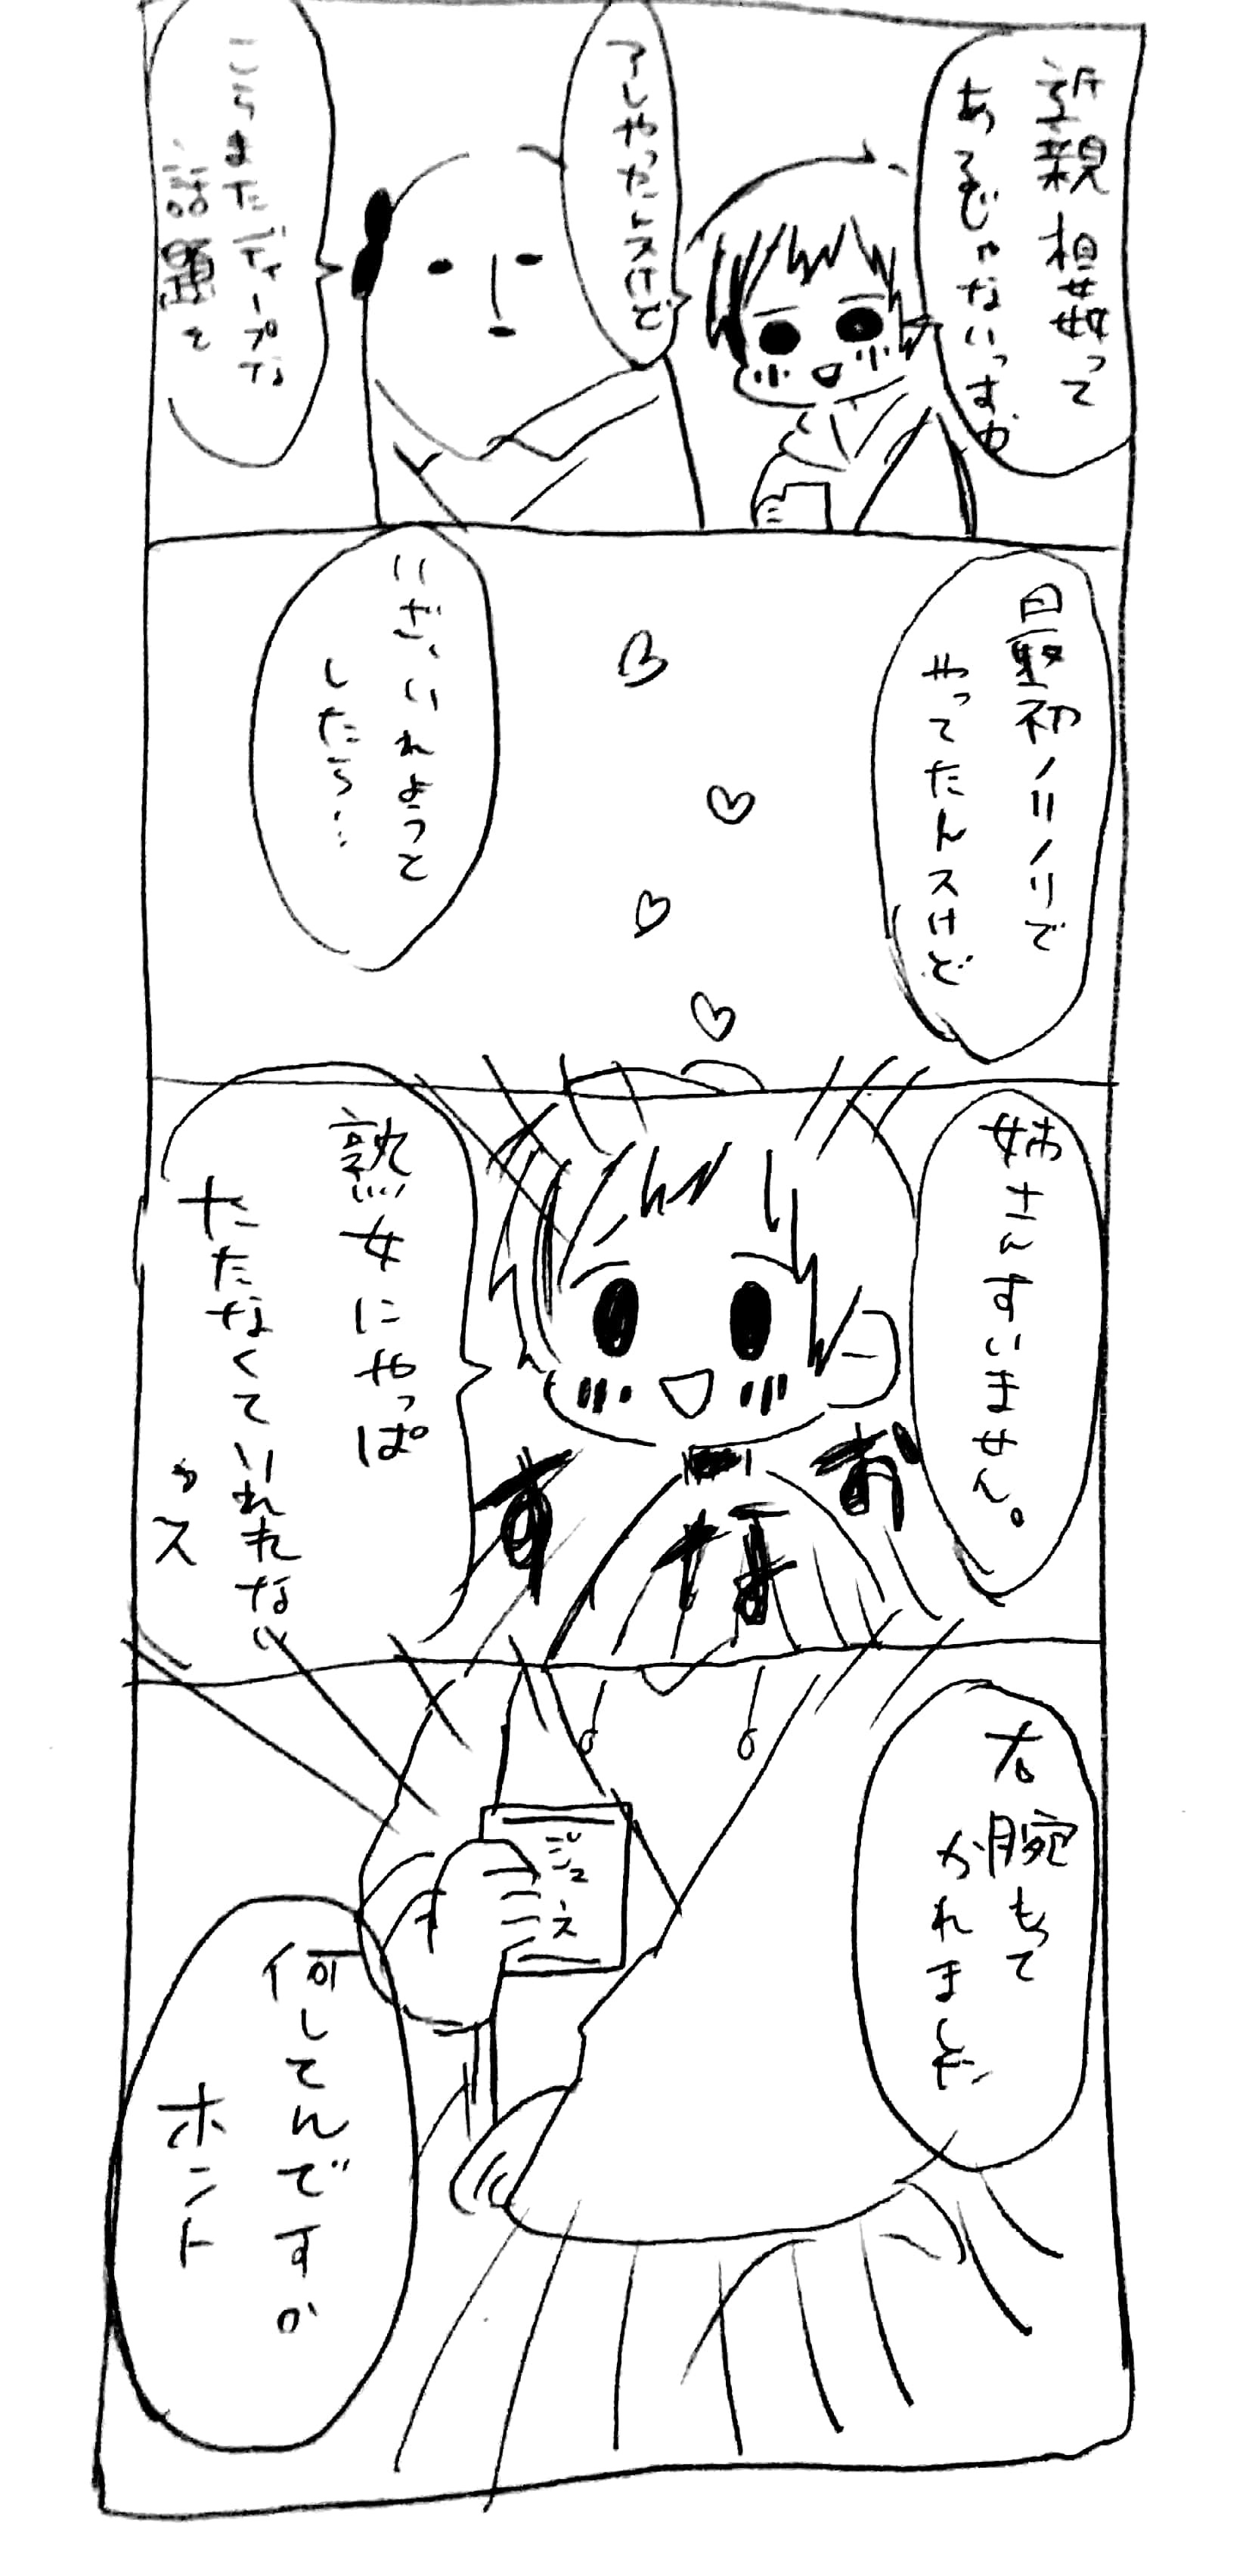 近親相姦って
あるじゃないっすか
アレやったんスけど
こらまたディープな
話題を
最初ノリノリで
やってたんスけど
いざ、いれようと
したら…
姉さんすいません。
熟女にやっぱ
たたなくていれれない
っス
右腕もって
かれました
ジュース
何してんですか
ホント